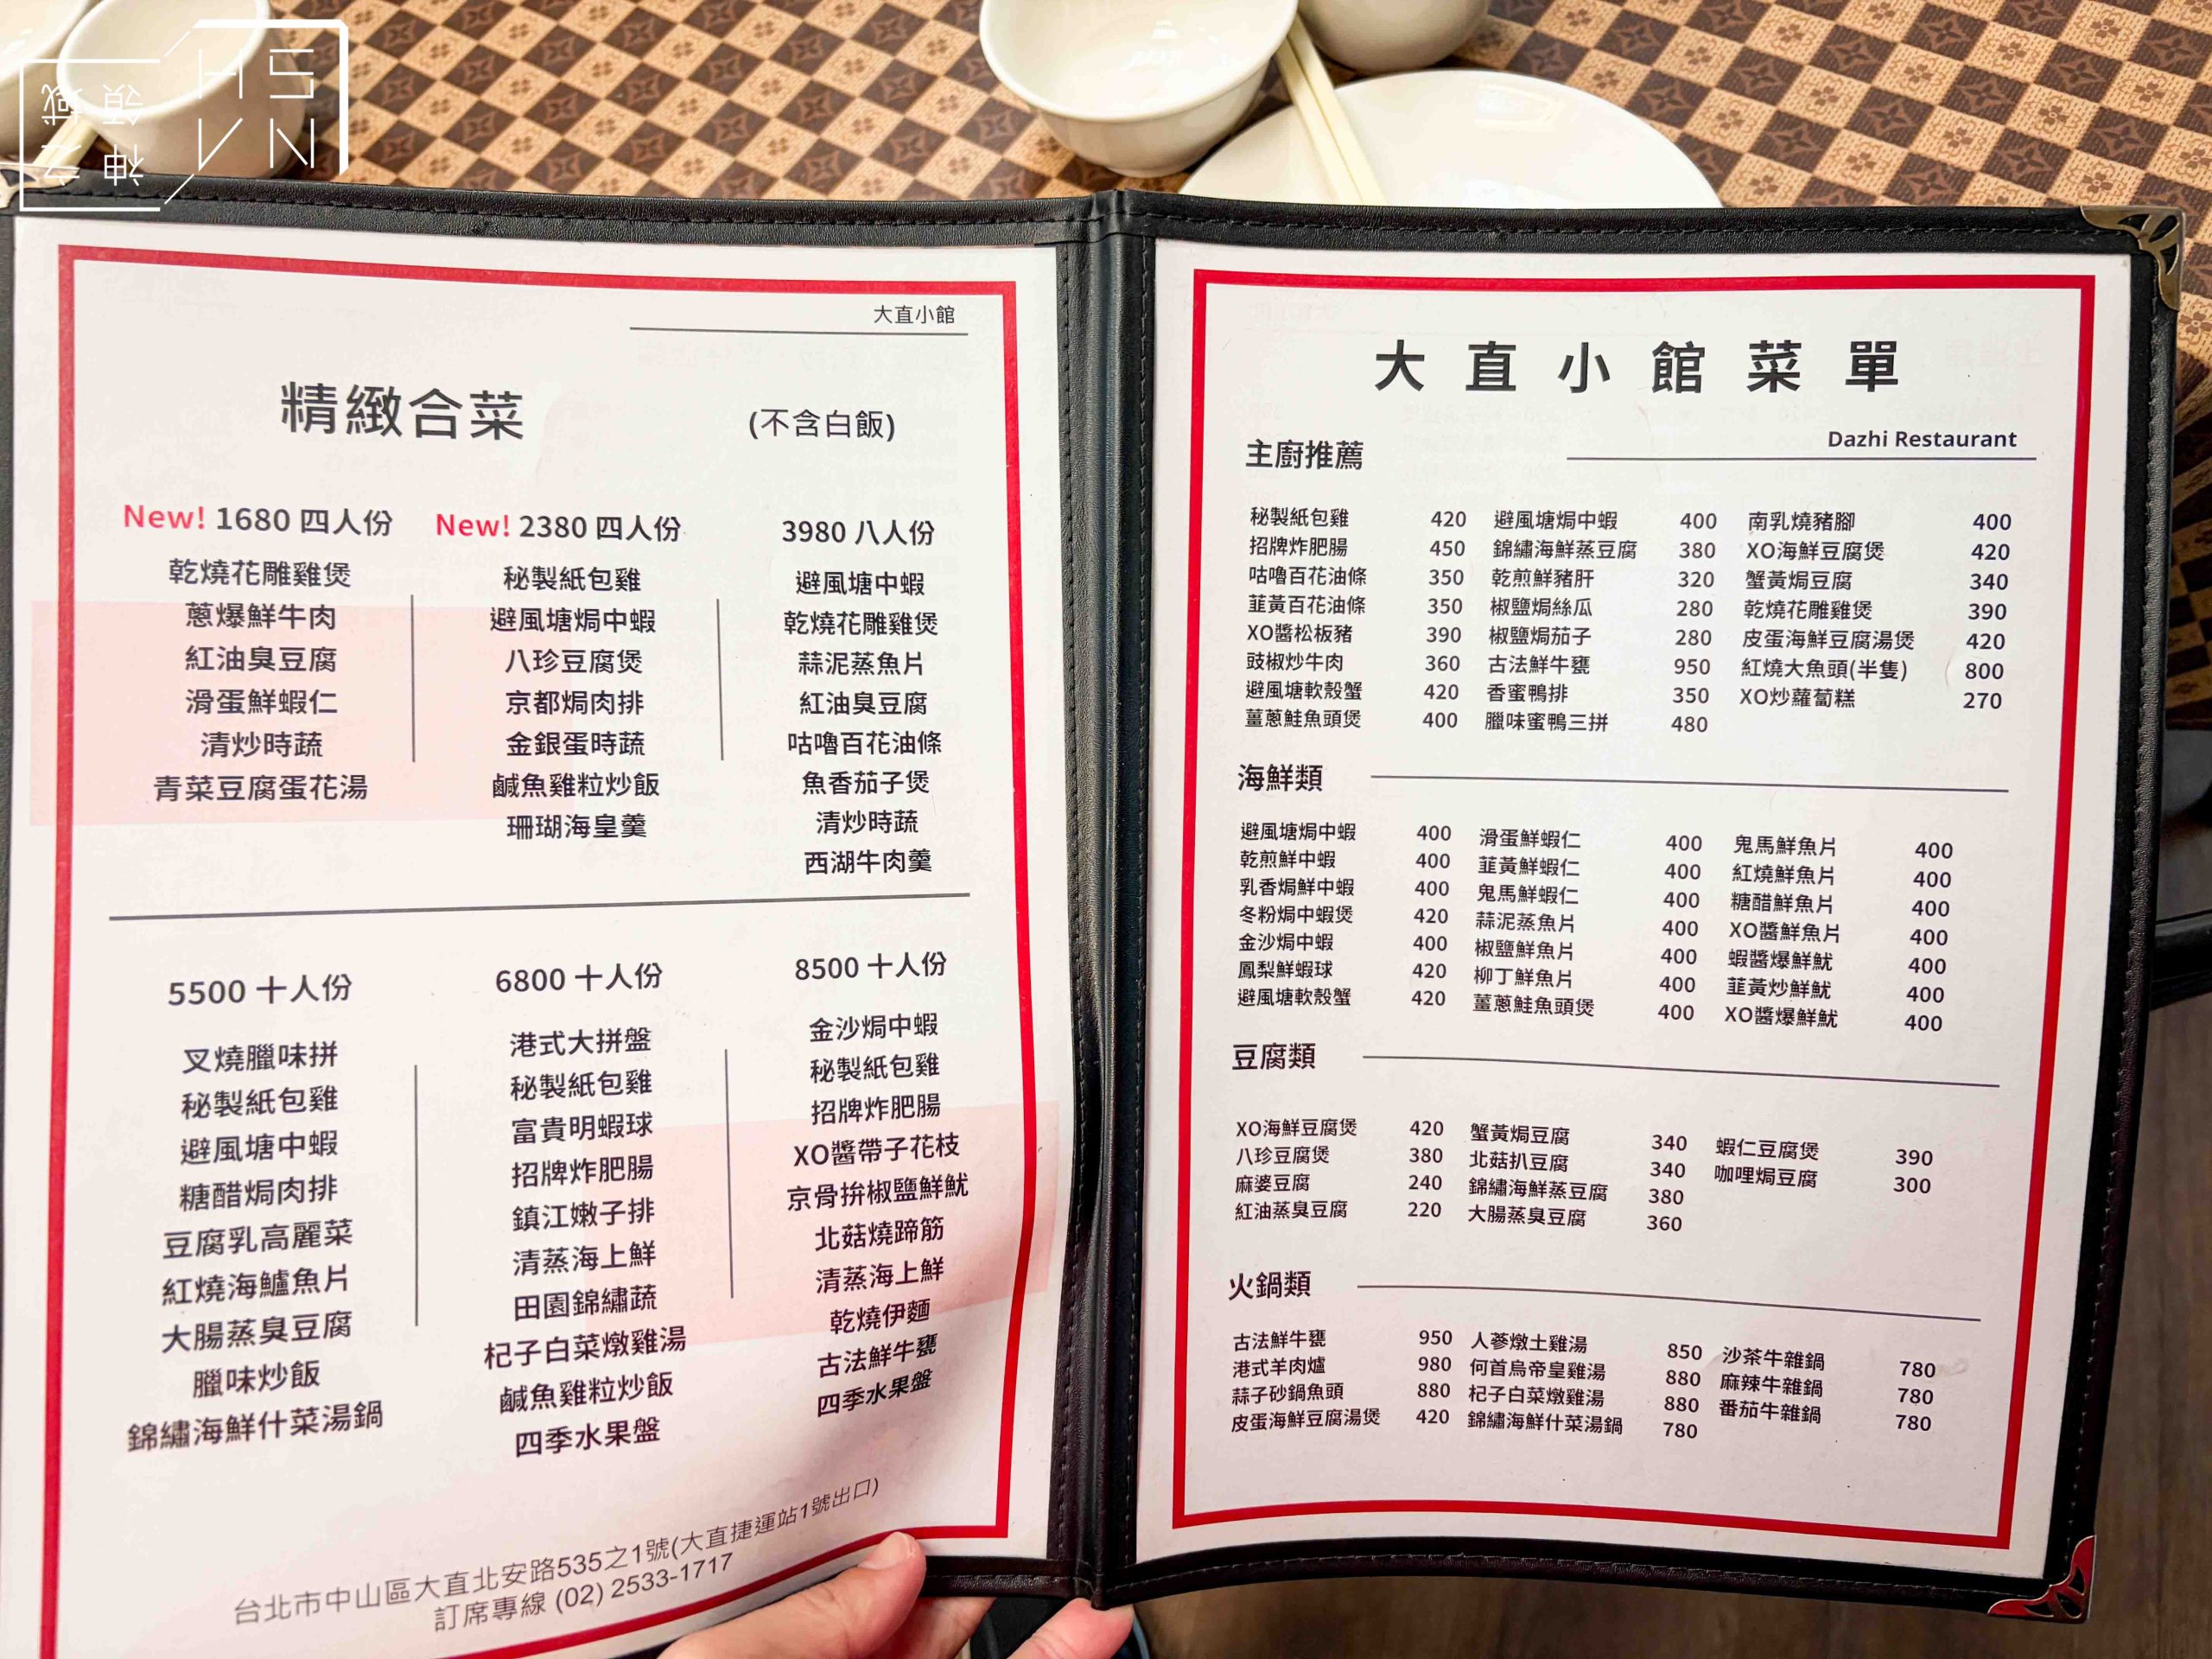 HS
VN
神之
領域
大直小館
精緻合菜 (不含白飯)
New! 1680 四人份
乾燒花雕雞煲
蔥爆鮮牛肉
紅油臭豆腐
滑蛋鮮蝦仁
清炒時蔬
青菜豆腐蛋花湯
New! 2380 四人份
秘製紙包雞
避風塘焗中蝦
八珍豆腐煲
京都焗肉排
金銀蛋時蔬
鹹魚雞粒炒飯
珊瑚海皇羹
3980 八人份
避風塘中蝦
乾燒花雕雞煲
蒜泥蒸魚片
紅油臭豆腐
咕嚕百花油條
魚香茄子煲
清炒時蔬
西湖牛肉羹
5500 十人份
叉燒臘味拼
秘製紙包雞
避風塘中蝦
糖醋焗肉排
豆腐乳高麗菜
紅燒海鱸魚片
大腸蒸臭豆腐
臘味炒飯
錦繡海鮮什菜湯鍋
6800 十人份
港式大拼盤
秘製紙包雞
富貴明蝦球
招牌炸肥腸
鎮江嫩子排
清蒸海上鮮
田園錦繡蔬
杞子白菜燉雞湯
鹹魚雞粒炒飯
四季水果盤
8500 十人份
金沙焗中蝦
秘製紙包雞
招牌炸肥腸
XO醬帶子花枝
京骨拚椒鹽鮮魷
北菇燒蹄筋
清蒸海上鮮
乾燒伊麵
古法鮮牛甕
四季水果盤
台北市中山區大直北安路535之1號(大直捷運站1號出口)
訂席專線 (02) 2533-1717
大直小館菜單
Dazhi Restaurant
主廚推薦
秘製紙包雞 420 避風塘焗中蝦 400 南乳燒豬腳 400
招牌炸肥腸 450 錦繡海鮮蒸豆腐 380 XO海鮮豆腐煲 420
咕嚕百花油條 350 乾煎鮮豬肝 320 蟹黃焗豆腐 340
韮黃百花油條 350 椒鹽焗絲瓜 280 乾燒花雕雞煲 390
XO醬松板豬 390 椒鹽焗茄子 280 皮蛋海鮮豆腐湯煲 420
豉椒炒牛肉 360 古法鮮牛甕 950 紅燒大魚頭(半隻) 800
避風塘軟殼蟹 420 香蜜鴨排 350 XO炒蘿蔔糕 270
薑蔥鮭魚頭煲 400 臘味蜜鴨三拼 480
海鮮類
避風塘焗中蝦 400 滑蛋鮮蝦仁 400 鬼馬鮮魚片 400
乾煎鮮中蝦 400 韮黃鮮蝦仁 400 紅燒鮮魚片 400
乳香焗鮮中蝦 400 鬼馬鮮蝦仁 400 糖醋鮮魚片 400
冬粉焗中蝦煲 420 蒜泥蒸魚片 400 XO醬鮮魚片 400
金沙焗中蝦 400 椒鹽鮮魚片 400 蝦醬爆鮮魷 400
鳳梨鮮蝦球 420 柳丁鮮魚片 400 韮黃炒鮮魷 400
避風塘軟殼蟹 420 薑蔥鮭魚頭煲 400 XO醬爆鮮魷 400
豆腐類
XO海鮮豆腐煲 420 蟹黃焗豆腐 340 蝦仁豆腐煲 390
八珍豆腐煲 380 北菇扒豆腐 340 咖哩焗豆腐 300
麻婆豆腐 240 錦繡海鮮蒸豆腐 380
紅油蒸臭豆腐 220 大腸蒸臭豆腐 360
火鍋類
古法鮮牛甕 950 人蔘燉土雞湯 850 沙茶牛雜鍋 780
港式羊肉爐 980 何首烏帝皇雞湯 880 麻辣牛雜鍋 780
蒜子砂鍋魚頭 880 杞子白菜燉雞湯 880 番茄牛雜鍋 780
皮蛋海鮮豆腐湯煲 420 錦繡海鮮什菜湯鍋 780